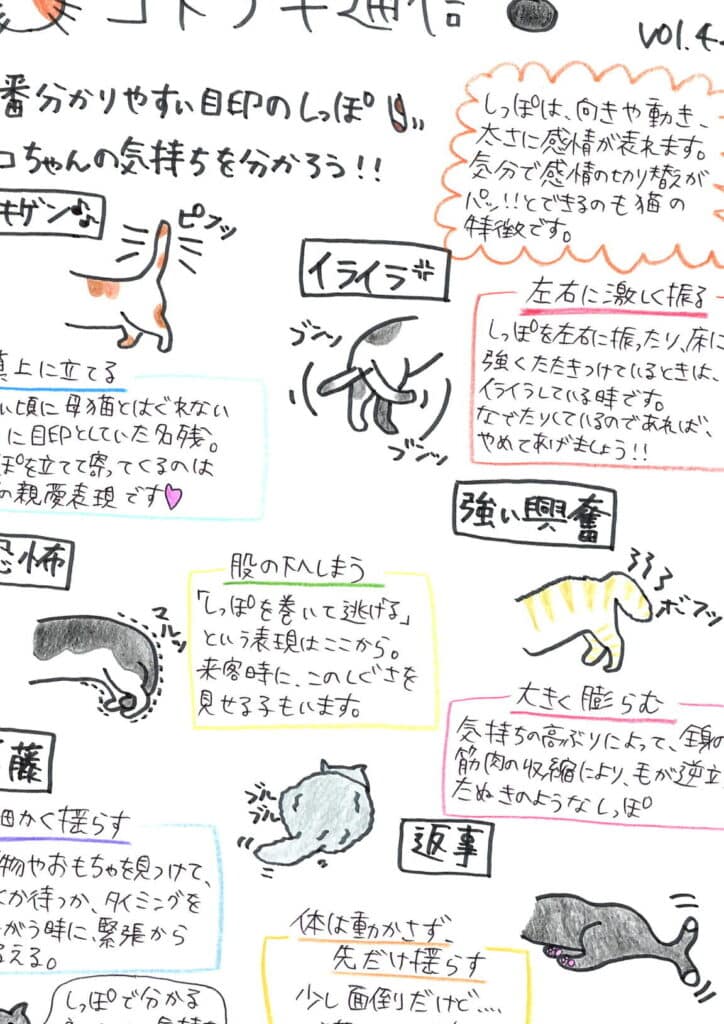 コトラキ通信
vol.4
番分かりやすい目印のしっぽ
コちゃんの気持ちを分かろう!!
しっぽは、向きや動き、
太さに感情が表れます。
気分で感情の切り替えが
パッ!!とできるのも猫の
特徴です。
キゲン♪♪
ピーンッ
真上に立てる
い頃に母猫とはぐれない
に目印としていた名残。
ぽを立てて寄ってくるのは
の親愛表現です♡
イライラ
ブンッ
ブンッ
左右に激しく振る
しっぽを左右に振ったり、床に
強くたたきつけているときは、
イライラしている時です。
なでたりしているのであれば、
やめてあげましょう!!
恐怖
マルッ
股の下へしまう
「しっぽを巻いて逃げる」
という表現はここから。
来客時に、このしぐさを
見せる子もいます。
強い興奮
ボフッ
大きく膨らむ
気持ちの高ぶりによって、全身の
筋肉の収縮により、毛が逆立
たぬきのようなしっぽ
藤
細かく揺らす
物やおもちゃを見つけて、
くか待つか、タイミングを
がう時に、緊張から
える。
ブルブル
返事
体は動かさず、
先だけ揺らす
少し面倒だけど....
しっぽで分かる